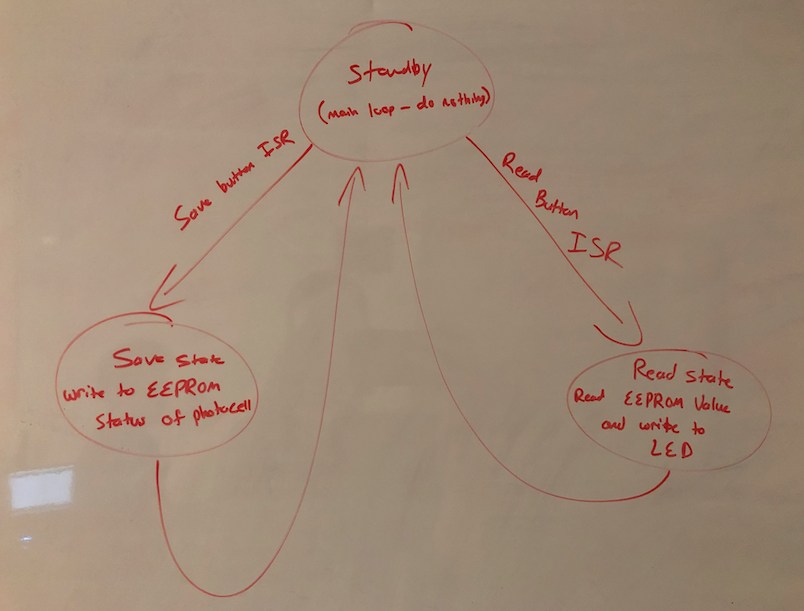 Standby
(main loop - do nothing)
Save button ISR
Read
Button
ISR
Save state
write to EEPROM
Status of photocell
Read state
Read EEPROM Value
and write to
LED